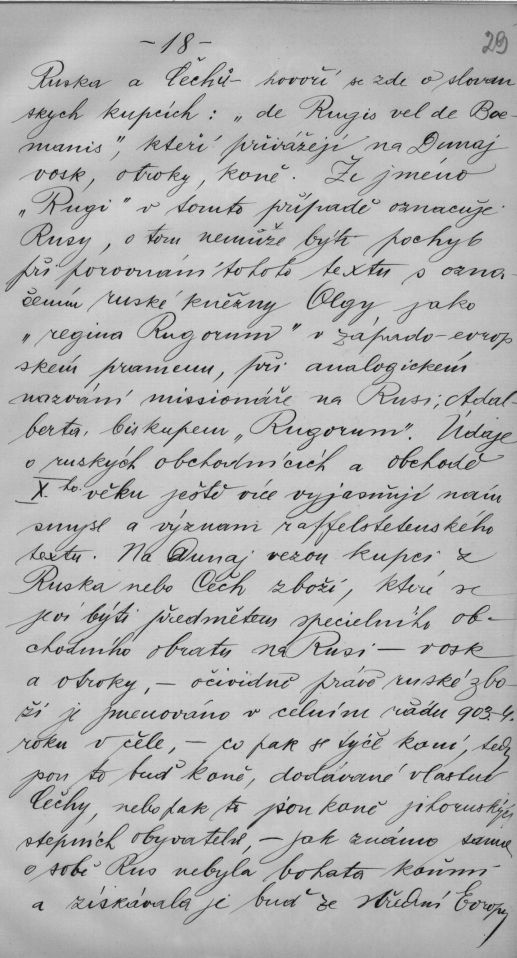 - 18 -
29
Ruska a Čechů - hovoří se zde o slovan
skych kupcích: „de Rugis vel de Boe-
manis", kteří přivážejí na Dunaj
vosk, otroky, koně. Že jméno
„Rugi" v tomto případě označuje
Rusy, o tom nemůže býti pochyb
při porovnání tohoto textu s ozna-
čením ruské kněžny Olgy, jako
„regina Rugorum" v západo-evrop
ském pramenu, při analogickém
nazvání missionáře na Rusi, Adal
berta, biskupem „Rugorum". Údaje
o ruských obchodnících a obchodě
X.ho věku ještě více vyjasňují nám
smysl a význam raffelstetenského
textu. Na Dunaj vezou kupci z
Ruska nebo Čech zboží, které se
jeví býti předmětem specielního ob-
chodního obratu na Rusi — vosk
a otroky, — očividně právě ruské zbo
ží je jmenováno v celním řádu 903-4.
roku v čele, — co pak se týče koní, tedy
jsou to buď koně, dodávané vlastně
Čechy, nebo pak to jsou koně jihoruských
stepních obyvatelů, — jak známo sama
o sobě Rus nebyla bohata koňmi
a získávala je buď ze střední Evropy